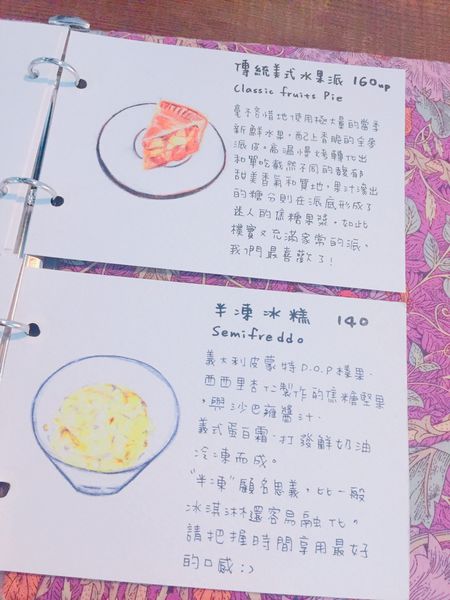 傳統美式水果派 160up
Classic fruits Pie
毫不吝惜地使用極大量的當季
新鮮水果，配上香脆的全麥
派皮，高溫慢烤轉化出
和單吃截然不同的馥郁
甜美香氣和質地，果汁溢出
的糖分則在派底形成了
迷人的焦糖果漿，如此
樸實又充滿家常的派、
我們最喜歡了！
半凍冰糕 140
Semifreddo
義大利皮蒙特D.O.P榛果、
西西里杏仁製作的焦糖堅果
，與沙巴雍醬汁、
義式蛋白霜、打發鮮奶油
冷凍而成。
"半凍"顧名思義，比一般
冰淇淋還容易融化。
請把握時間享用最好
的口感:)